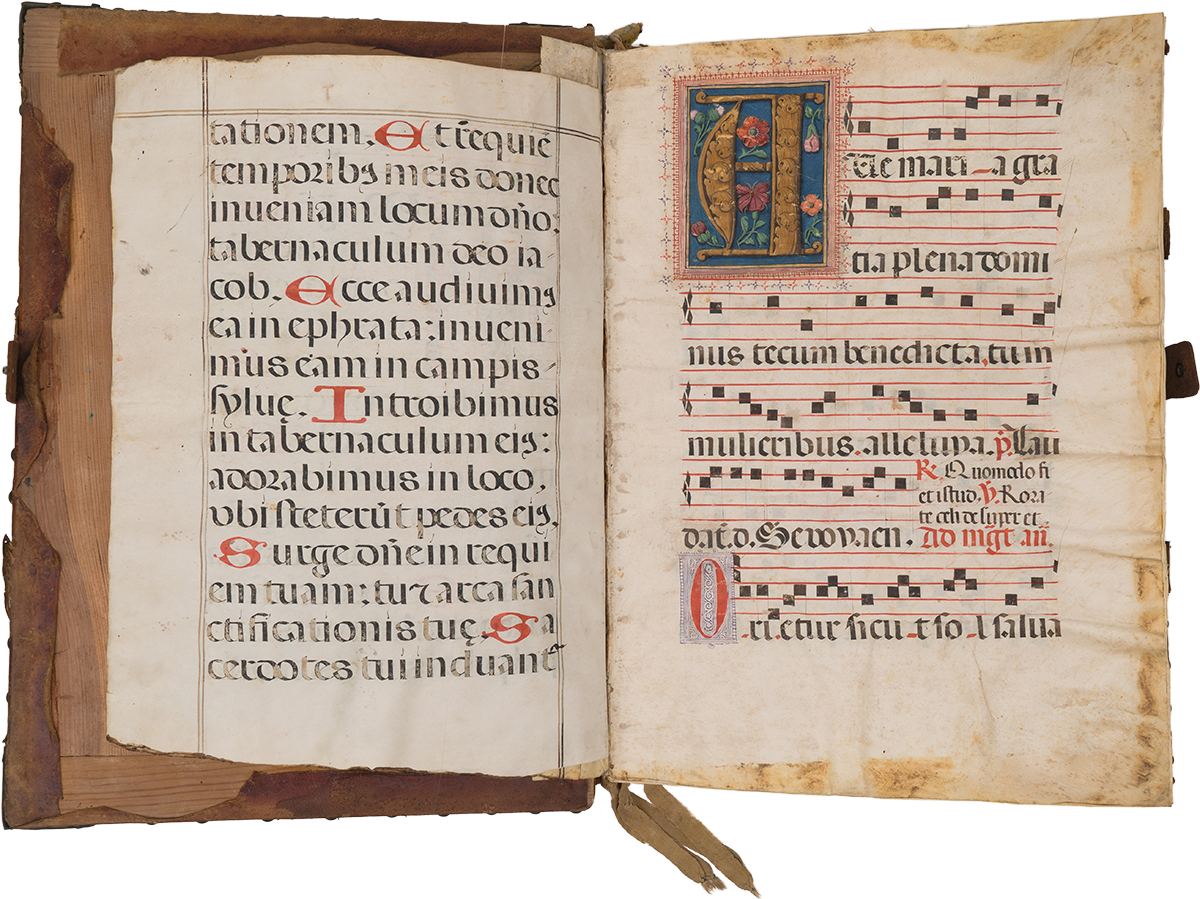 tationem. Et req̄uiē
temporibꝫ meis donec
inueniam locum dn̄o:
tabernaculum deo ia-
cob. Ecce audiuimꝰ
ea in ephrata: inueni-
mus eam in campis
syluę. Introibimus
in tabernaculum eiꝰ:
adorabimus in loco,
vbi steterūt pedes eiꝰ.
Surge dn̄e in requi
em tuam: tu ⁊ arca san
ctificationis tuę. Sa
cerdotes tui induant᷑
Aue mari-a gra
tia plena domi
nus tecum benedicta, tu in
mulieribus. alleluya. p̄. Lau
℟. Quomodo fi
et istud. ℣. Rora
te celi desuper et
dat̄. d. Seuouaen. Ad mḡt an̄.
O-ri-etur sicu-t so-l salua